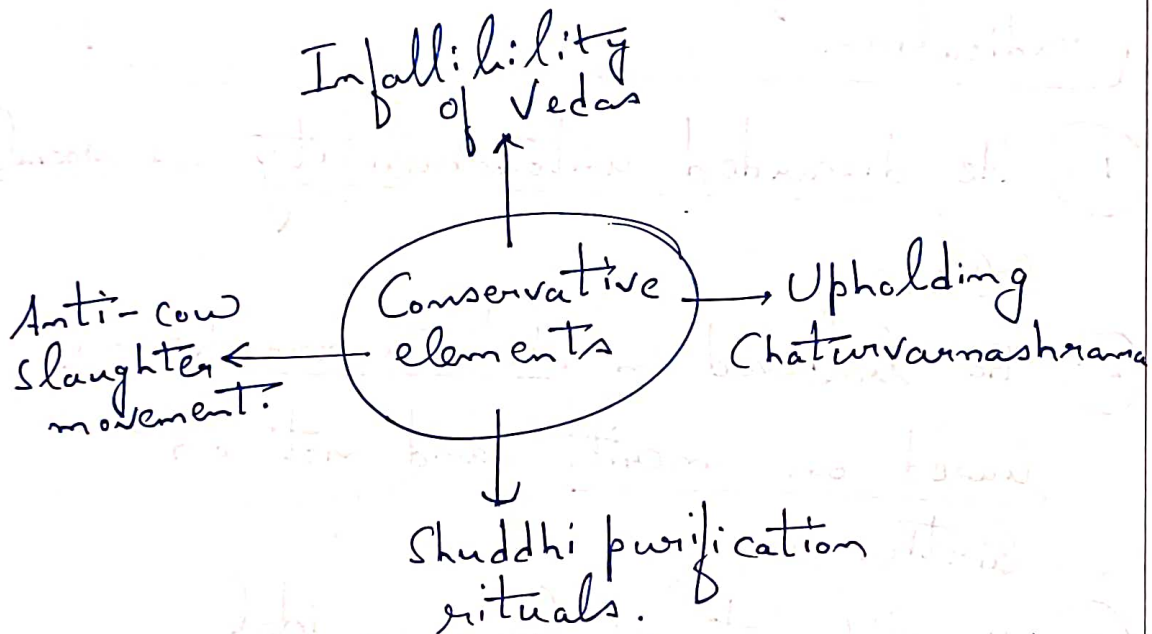 Infallibility
of Vedas
Conservative
elements
Upholding
Chaturvarnashrama
Anti-cow
slaughter
movement.
Shuddhi purification
rituals.